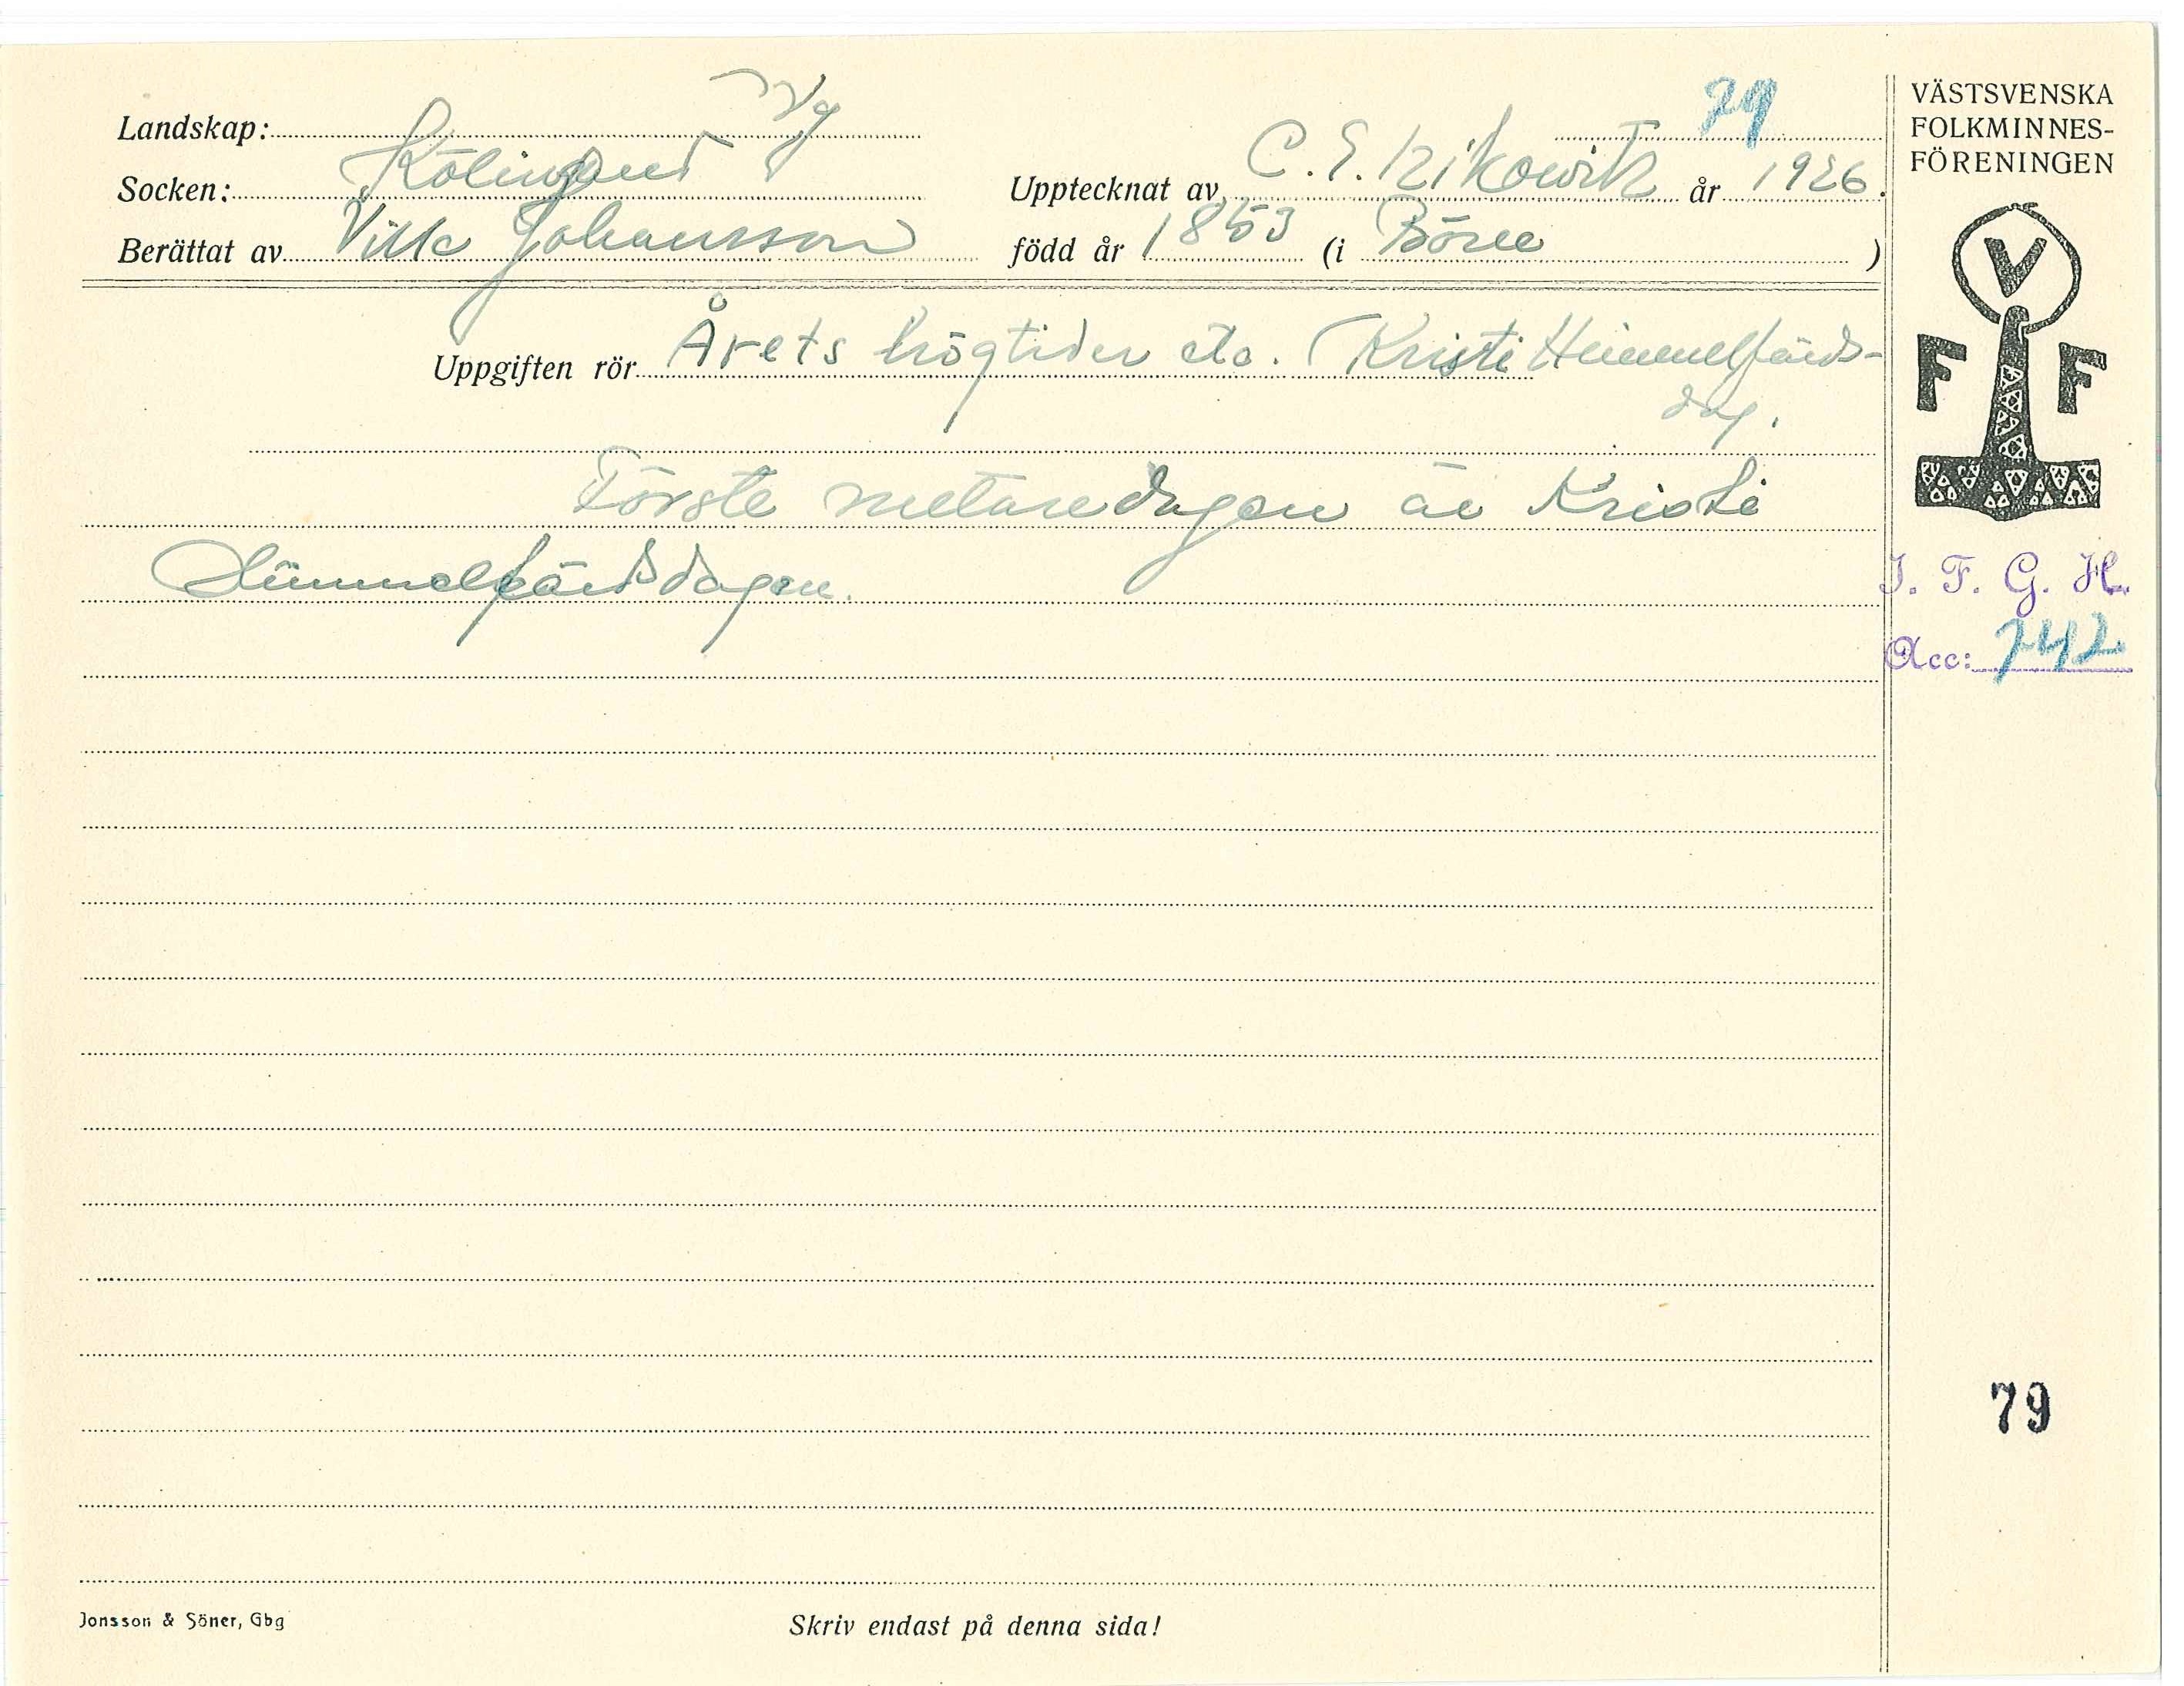 Landskap: Vg
79
Socken: Kölingared
Upptecknat av C. E. Izikowitz år 1926.
Berättat av Ville Johansson
född år 1853 (i Börse )
Uppgiften rör Årets högtider etc. (Kristi Himmelfärds-
dag.
Förste metaredagen äe Kristi
Himmelfärdsdagen.
VÄSTSVENSKA
FOLKMINNES-
FÖRENINGEN
V
F F
I. F. G. H.
Acc: 742
79
Jonsson & Söner, Gbg
Skriv endast på denna sida!